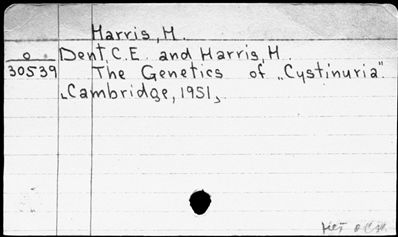 Harris, H.
o Dent, C.E. and Harris, H.
30539 The Genetics of „Cystinuria".
„Cambridge, 1951„